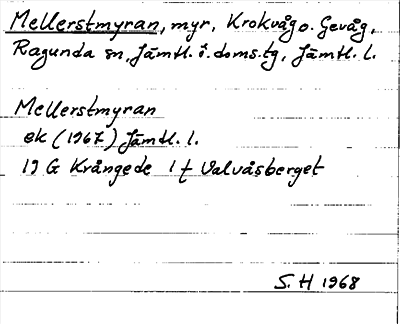 Mellerstmyran, myr, Krokvåg o. Gevåg,
Ragunda sn, Jämtl. ö. doms.tg, Jämtl. l.
Mellerstmyran
ek (1967) Jämtl. l.
19 G Krångede 1 f Valvåsberget
S. H 1968